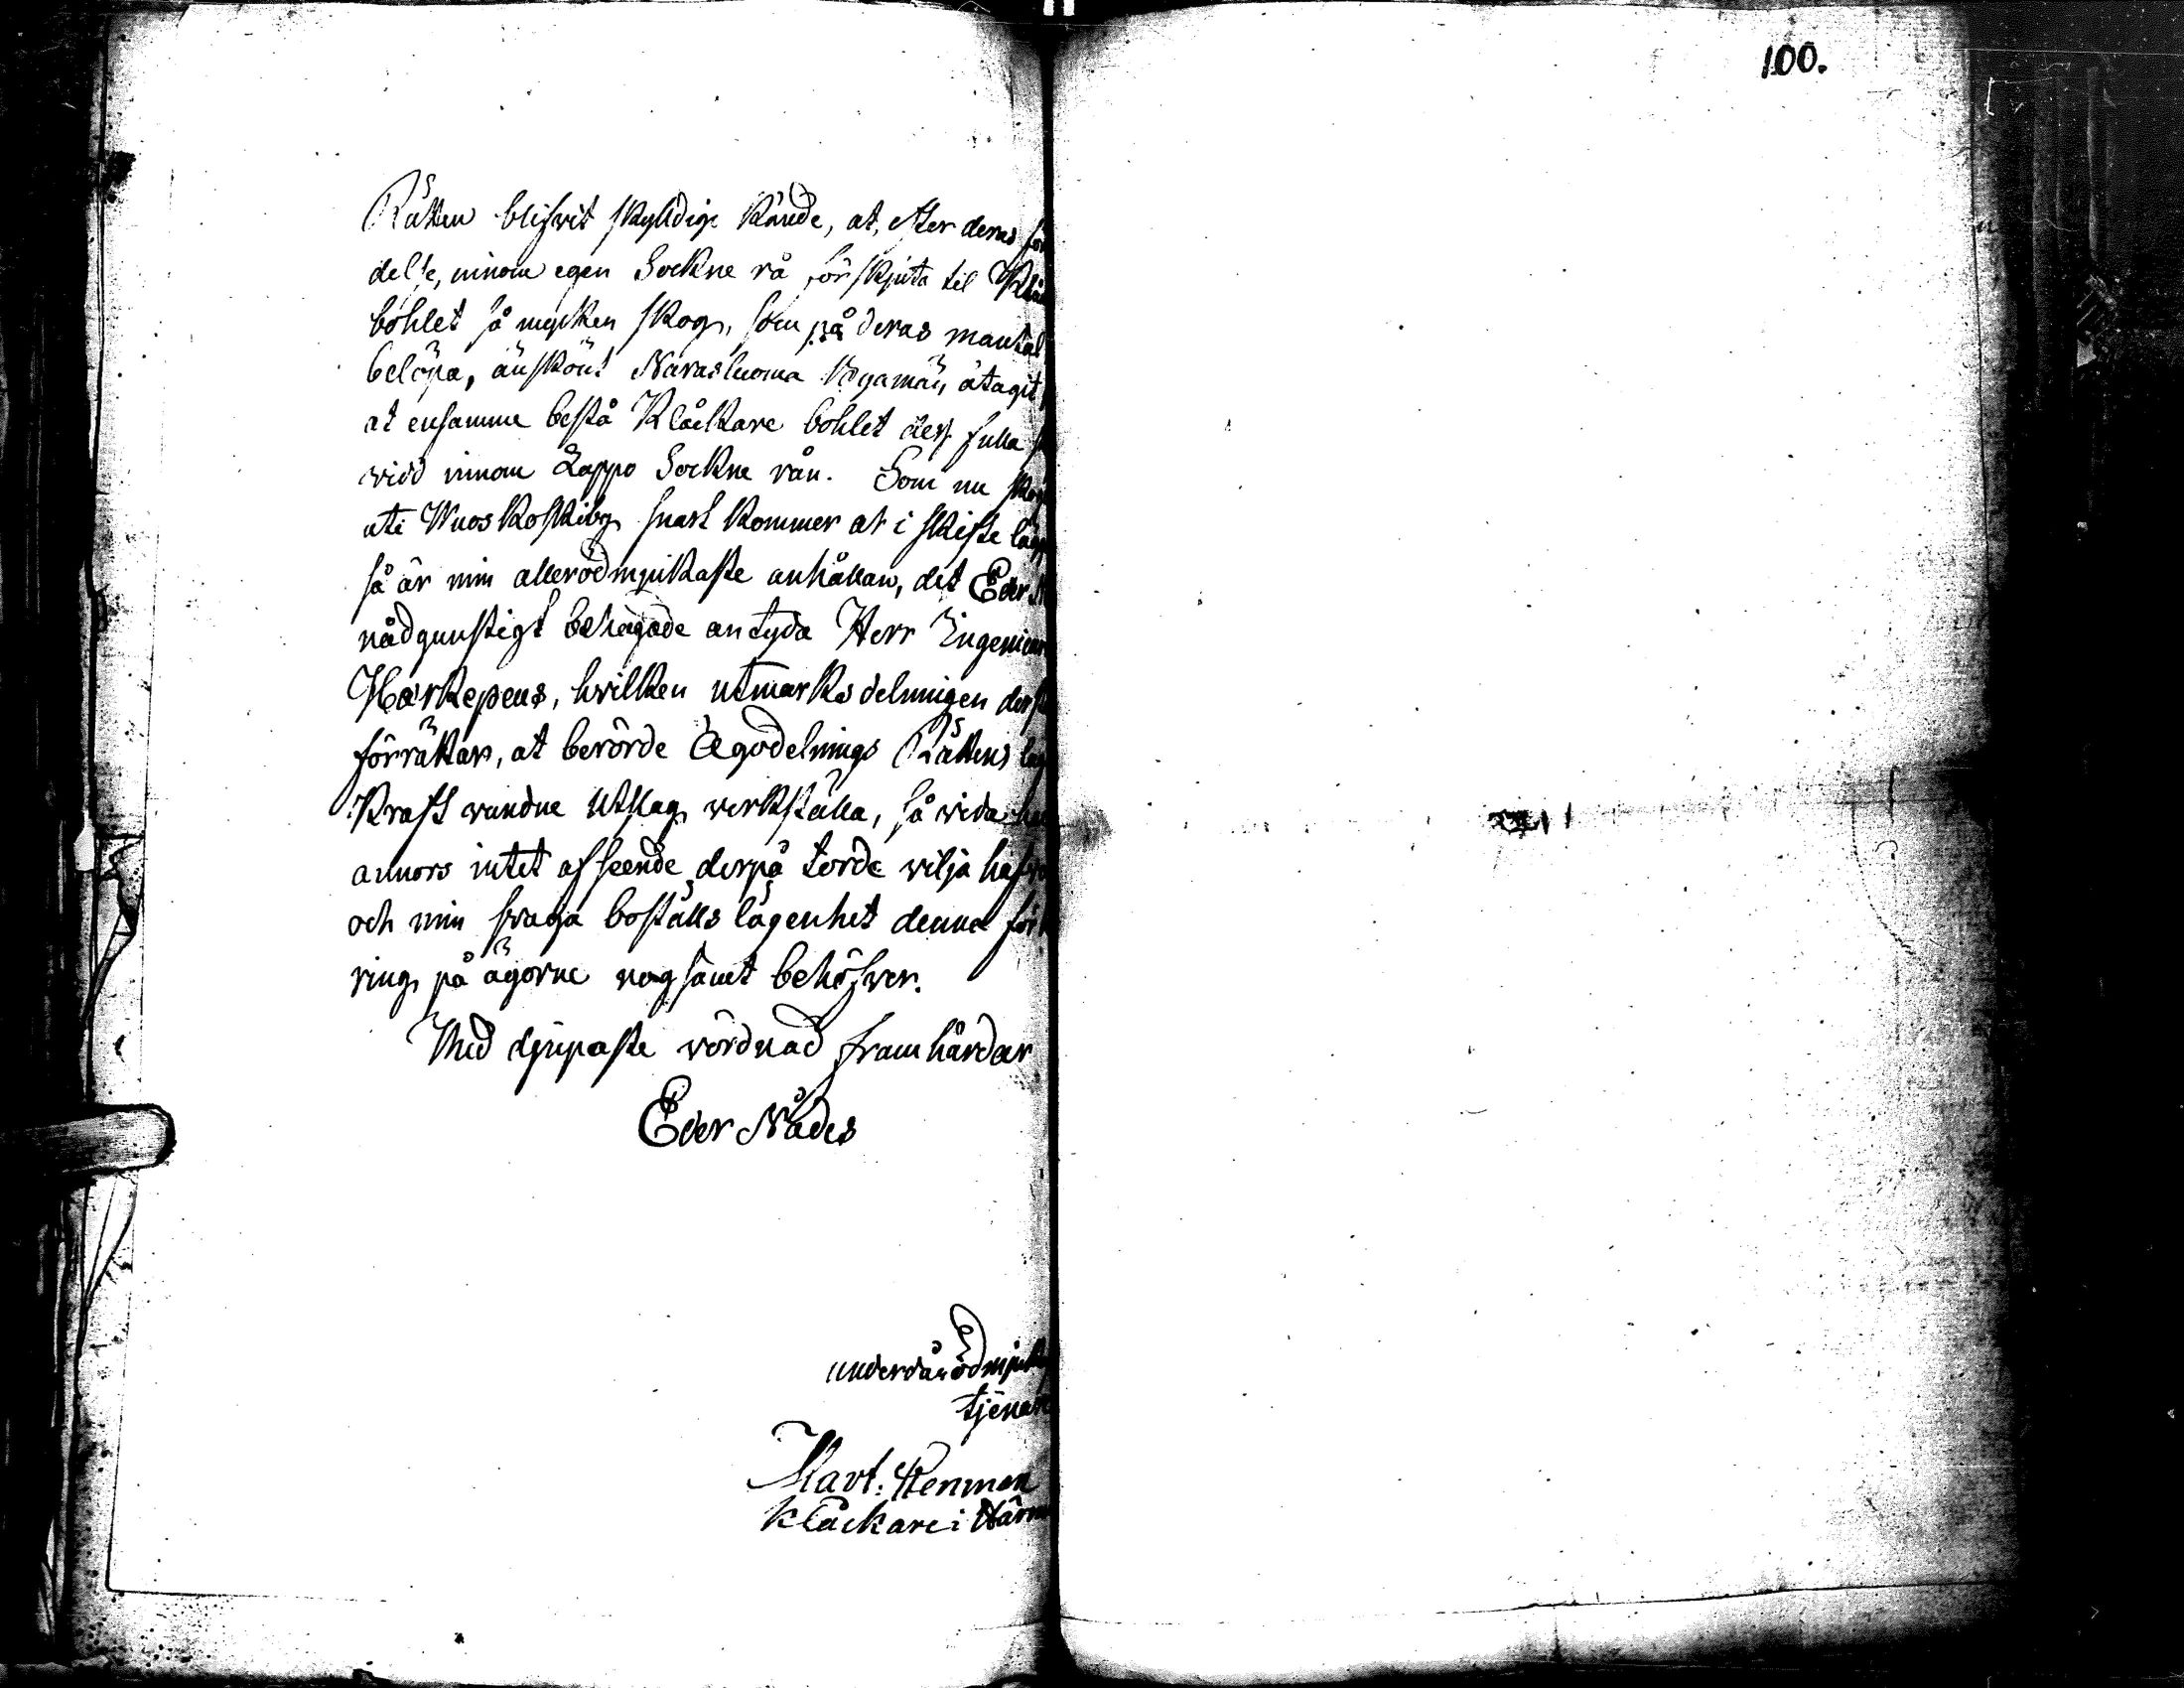 100.
Rätten blifwit skyldige kände, at, efter deras
delse, innom egen Sockne rå förskjuta til
bohlet så mycken skog, som på deras mantal
belöpa, änskönt Navasluoma bygamän åtagit
at ensamme bestå Klåckare bohlet dess fulla
vidd innom Lappo Sockne rån. Som nu
uti Wuoskoskiby snart kommer at i skifte
så är min allerödmjukaste anhållan, det Eder
nådgunstigt behagade antyda Herr Ingenieur
Harkepeus, hvilken utmarks delningen
förrättar, at berörde Ägodelnings Rättens
Kraft vundne Utslag verkställa, så vida
annors intet afseende derpå torde vilja hafva
och min svaga boställs lägenhet denna
ring på ägorne nogsamt behöfver.
Med djupaste vördnad framhärdar
Eder Nådes
underdånödmjuk
tjenare
Mart: Stenman
Klåckare i